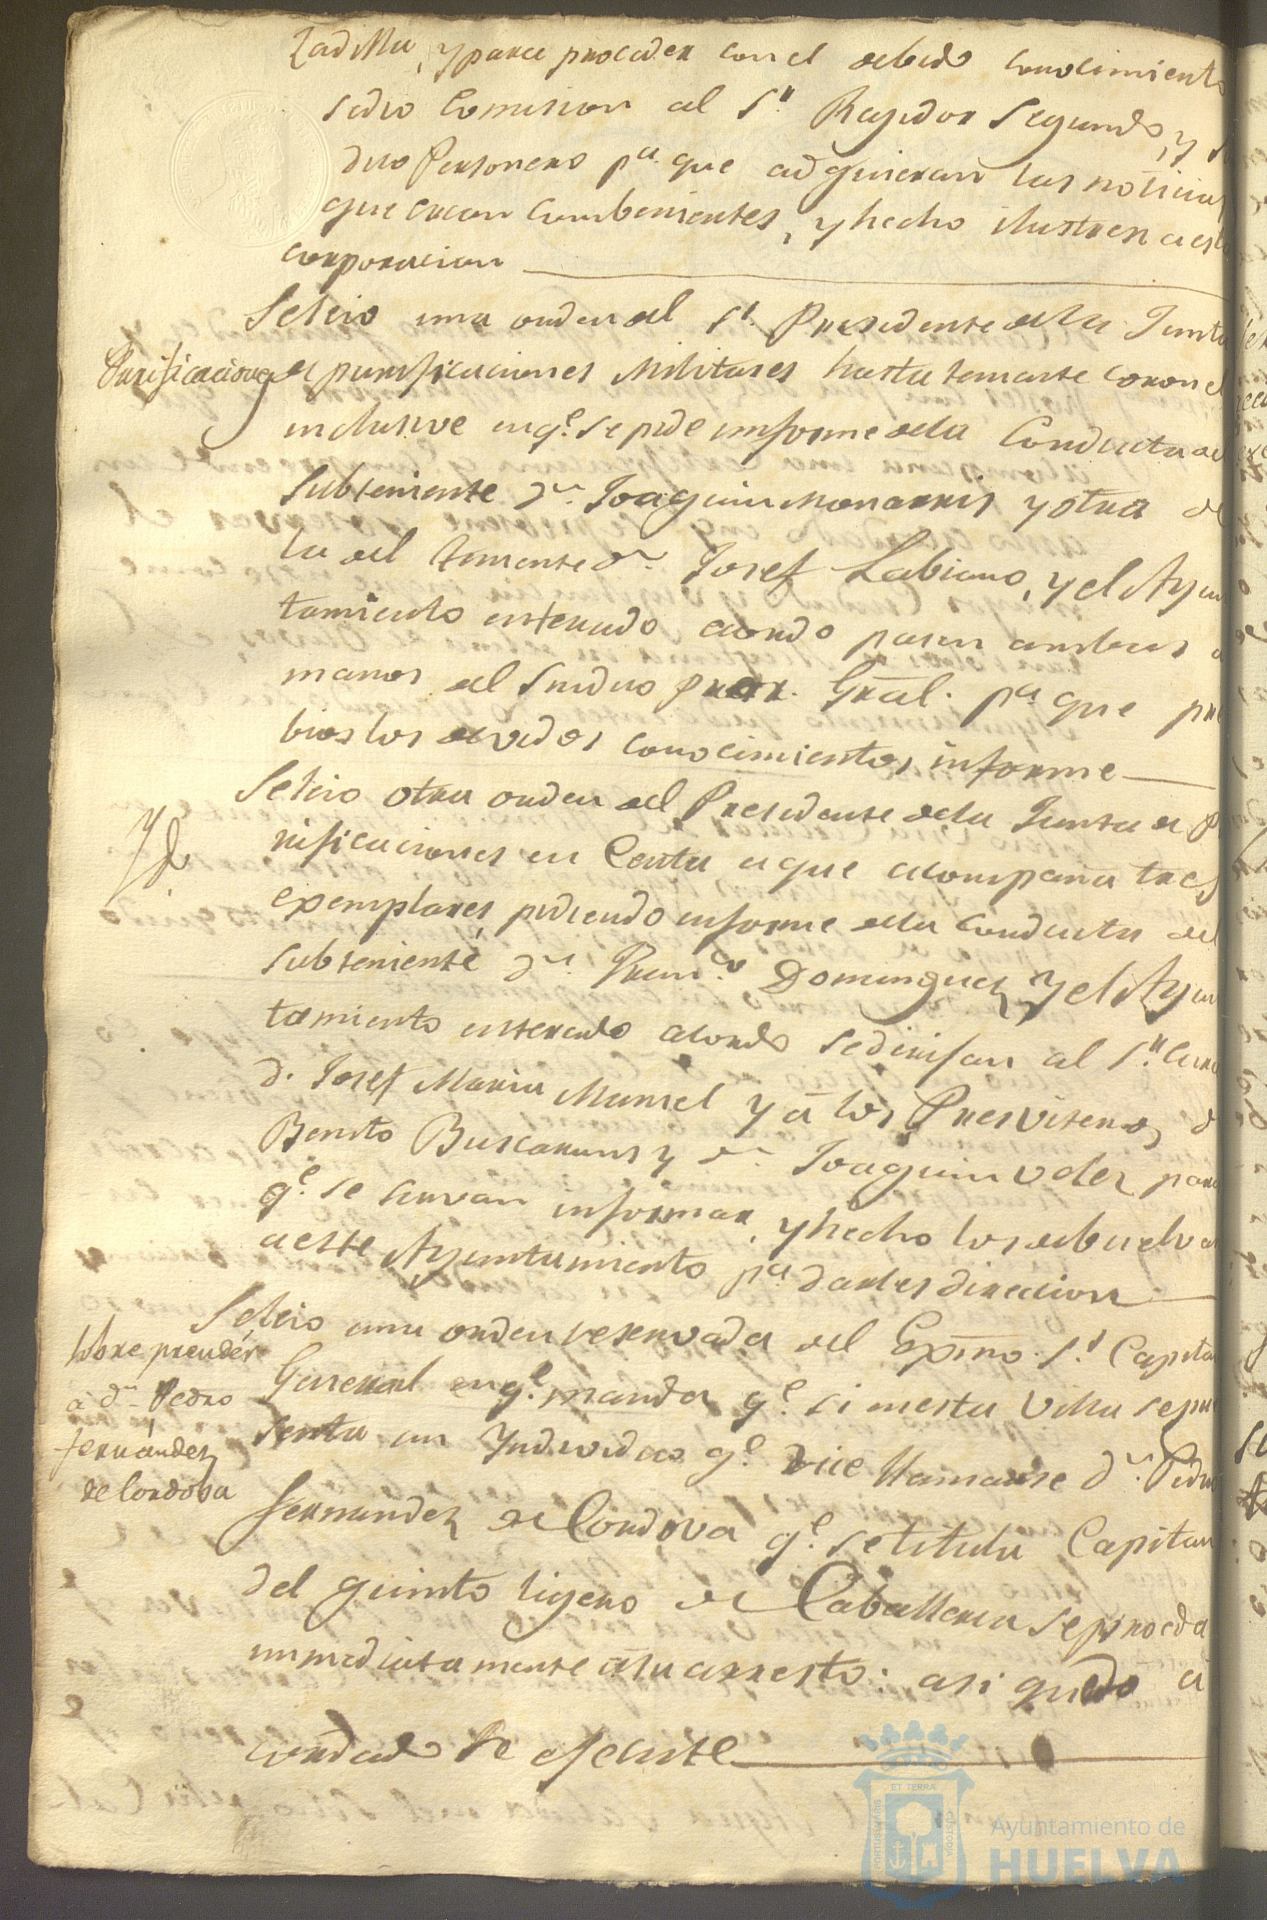 Zadilla, y para proceder con el debido conocimiento
sedio Comision al Sr. Regidor Segundo, y Sn
dico Personero pa. que adquieran las noticias
que crean combenientes, y hecho ilustren a esta
corporacion
Seleio una orden del Sr. Presidente dela Junta
Purificaciones
de purificaciones Militares hasta teniente coronel
inclusive en qe. se pide imforme dela Conducta del
Subteniente Dn. Joaquin Monarris y otra de
la del teniente Dn. Josef Labiano, y el Ayun
tamiento enterado acordo pasen ambas a
manos del Sindico Pror. Gral. pa que pre
bios los devidos conocimientos informe
Yd.
Seleio otra orden del Presidente dela Junta de Pu
rificaciones en Carta a que acompaña tres
exemplares, pidiendo informe dela conducta del
subteniente Dn. Franco. Dominguez, y el Ayun
tamiento enterado acordo se dirijan al Sr. Cura
D. Josef Maria Mansel y a los Presviteros D
Benito Buscaruns y Dn. Joaquin Velez para
qe. se sirvan informar, y hecho los debuelvan
a este Ayuntamiento pa. darles direccion
Seleio una orden reservada del Exmo. Sr. Capitan
sobre prender
a Dn. Pedro
fernandez
de Cordoba
General en qe. manda qe. si en esta Villa se pre
senta un Yndividuo qe. dice llamarse Dn. Pedro
fernandez de Cordova qe. se titula Capitan
del quinto ligero de Caballeria se proceda
inmediatamente a su arresto: asi quedo a
cordado se ejecute
ET TERRA
CUSTODIA
Ayuntamiento de
HUELVA